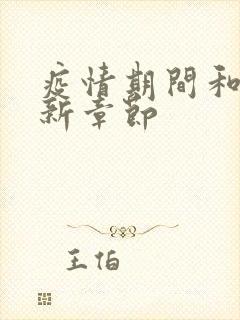 疫情期間和
新章節
王伯